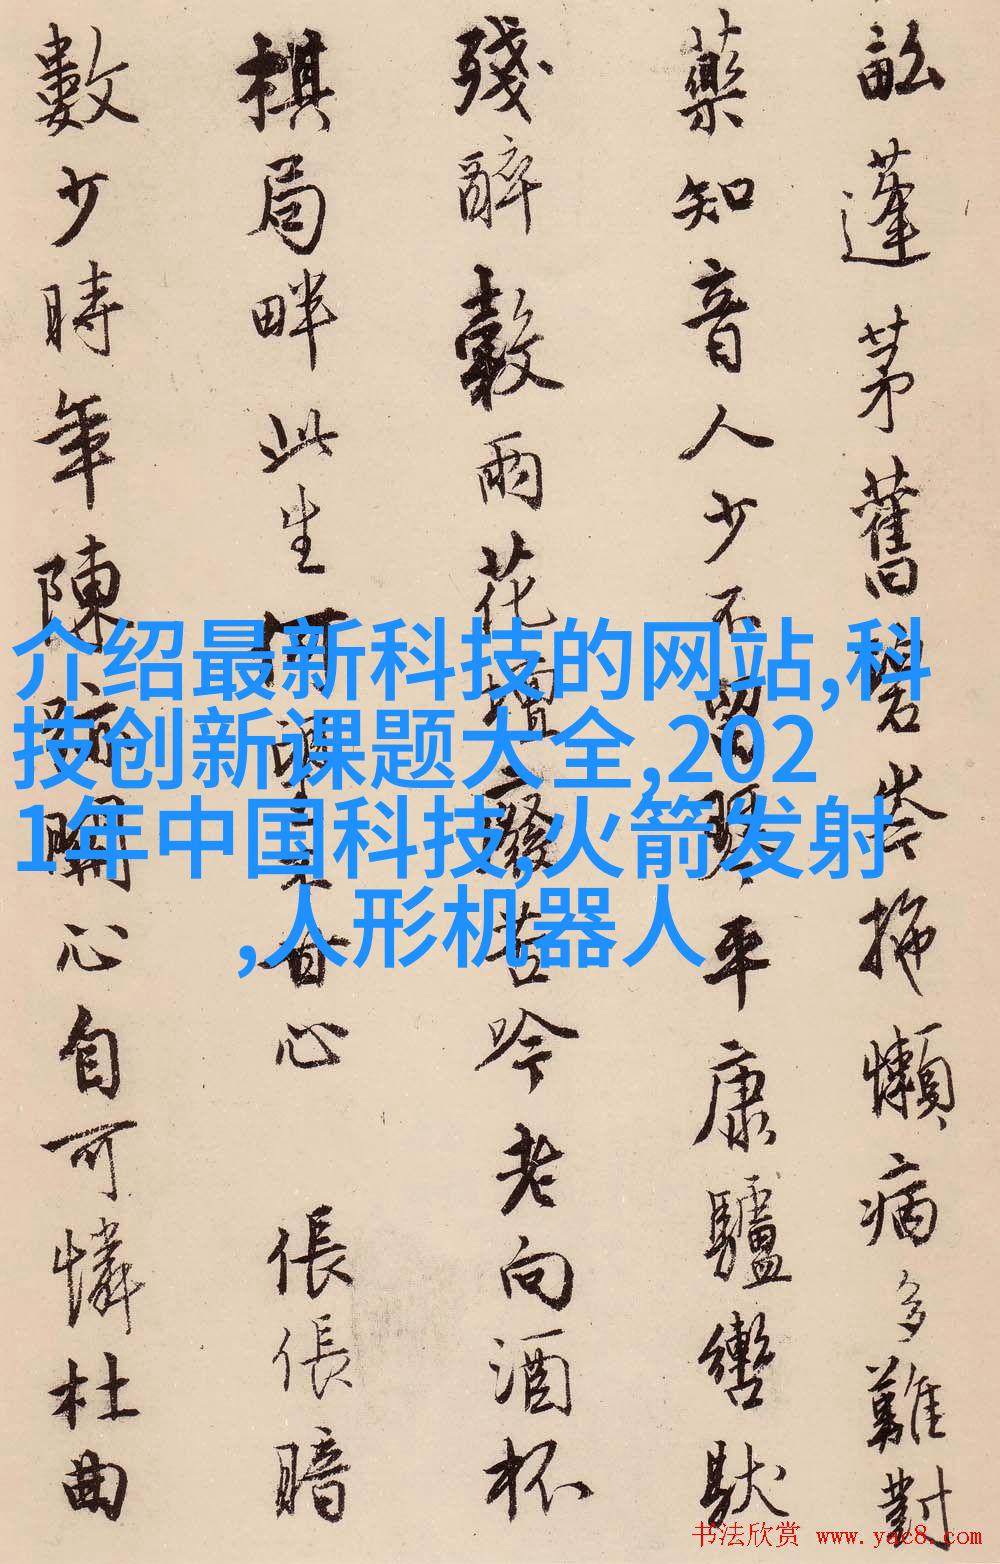 蓬茅舊碧岑拖懶病多難對
藥知音人少不留琴平康驢轡馱
殘醉穀雨花壇廢苦吟老向酒杯
棋局畔此生何甘心 倀倀暗
數少時年陳跡關心自可憐杜曲
介绍最新科技的网站,科
技创新课题大全,202
1年中国科技,火箭发射
,人形机器人
书法欣赏 www.yac8.com